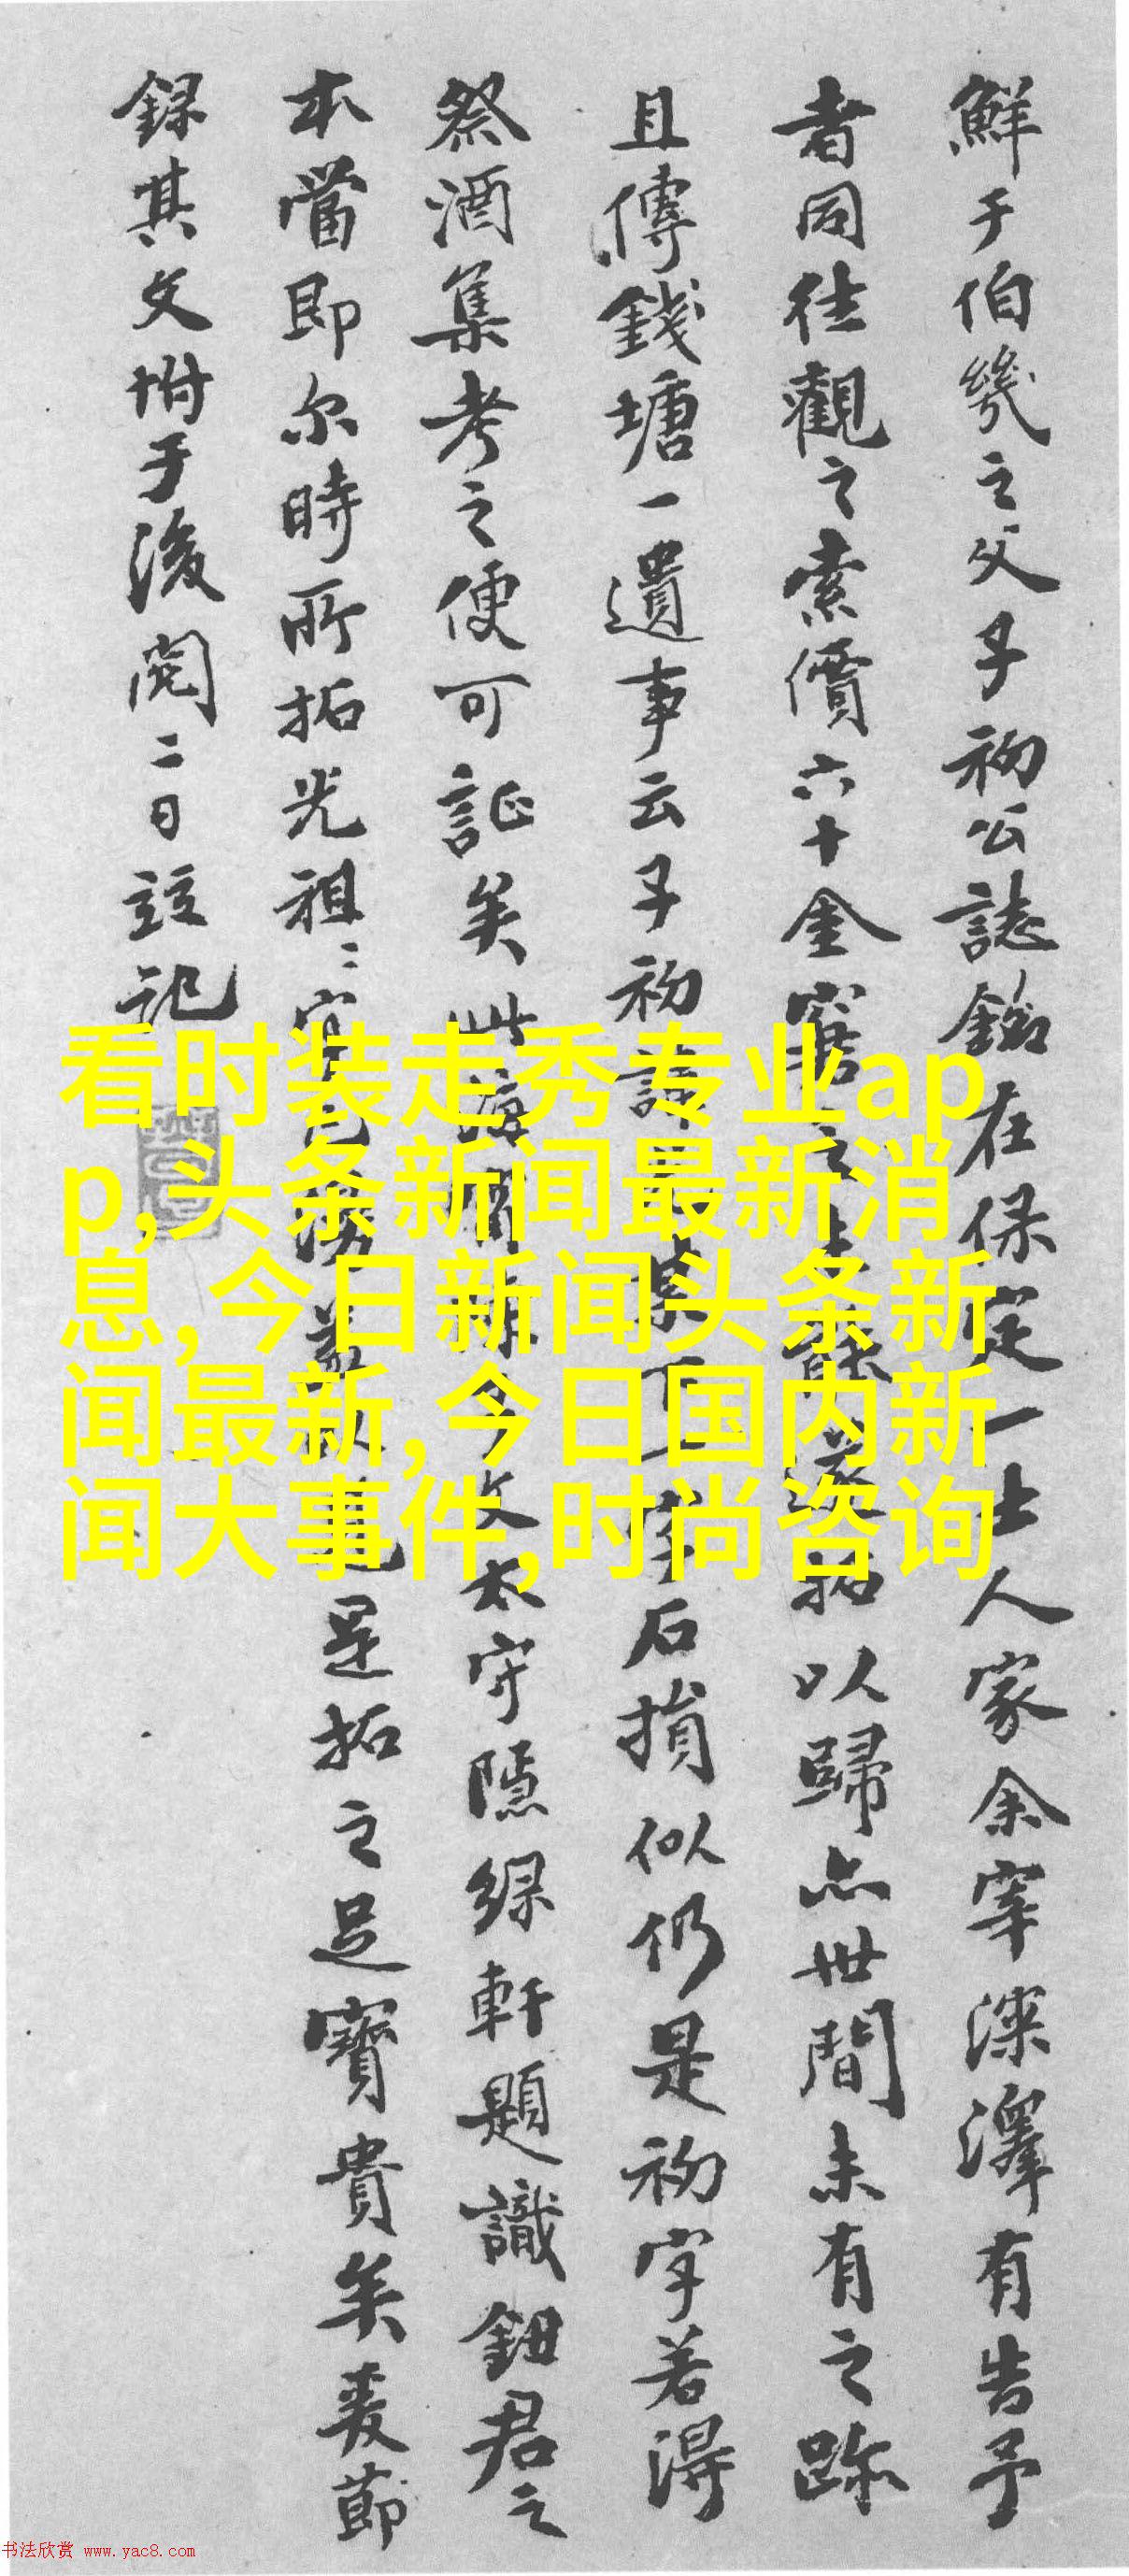 鮮于伯幾之父子初公誌銘在保定一士人家余宰深澤有告予
者同往觀之索價六十金窘之未能遂拓以歸亦世間未有之跡
且傳錢塘一遺事云子初諱下一字石損似仍是初字若得
祭酒集考之便可証矣此攷太守隱綠軒題識鈕君之
本當即尔時所拓光祖是拓之足寶貴矣爰節
録其文坿于後閏二日竝記
看时装走秀专业ap
p,头条新闻最新消
息,今日新闻头条新
闻最新,今日国内新
闻大事件,时尚咨询
书法欣赏 www.yac8.com